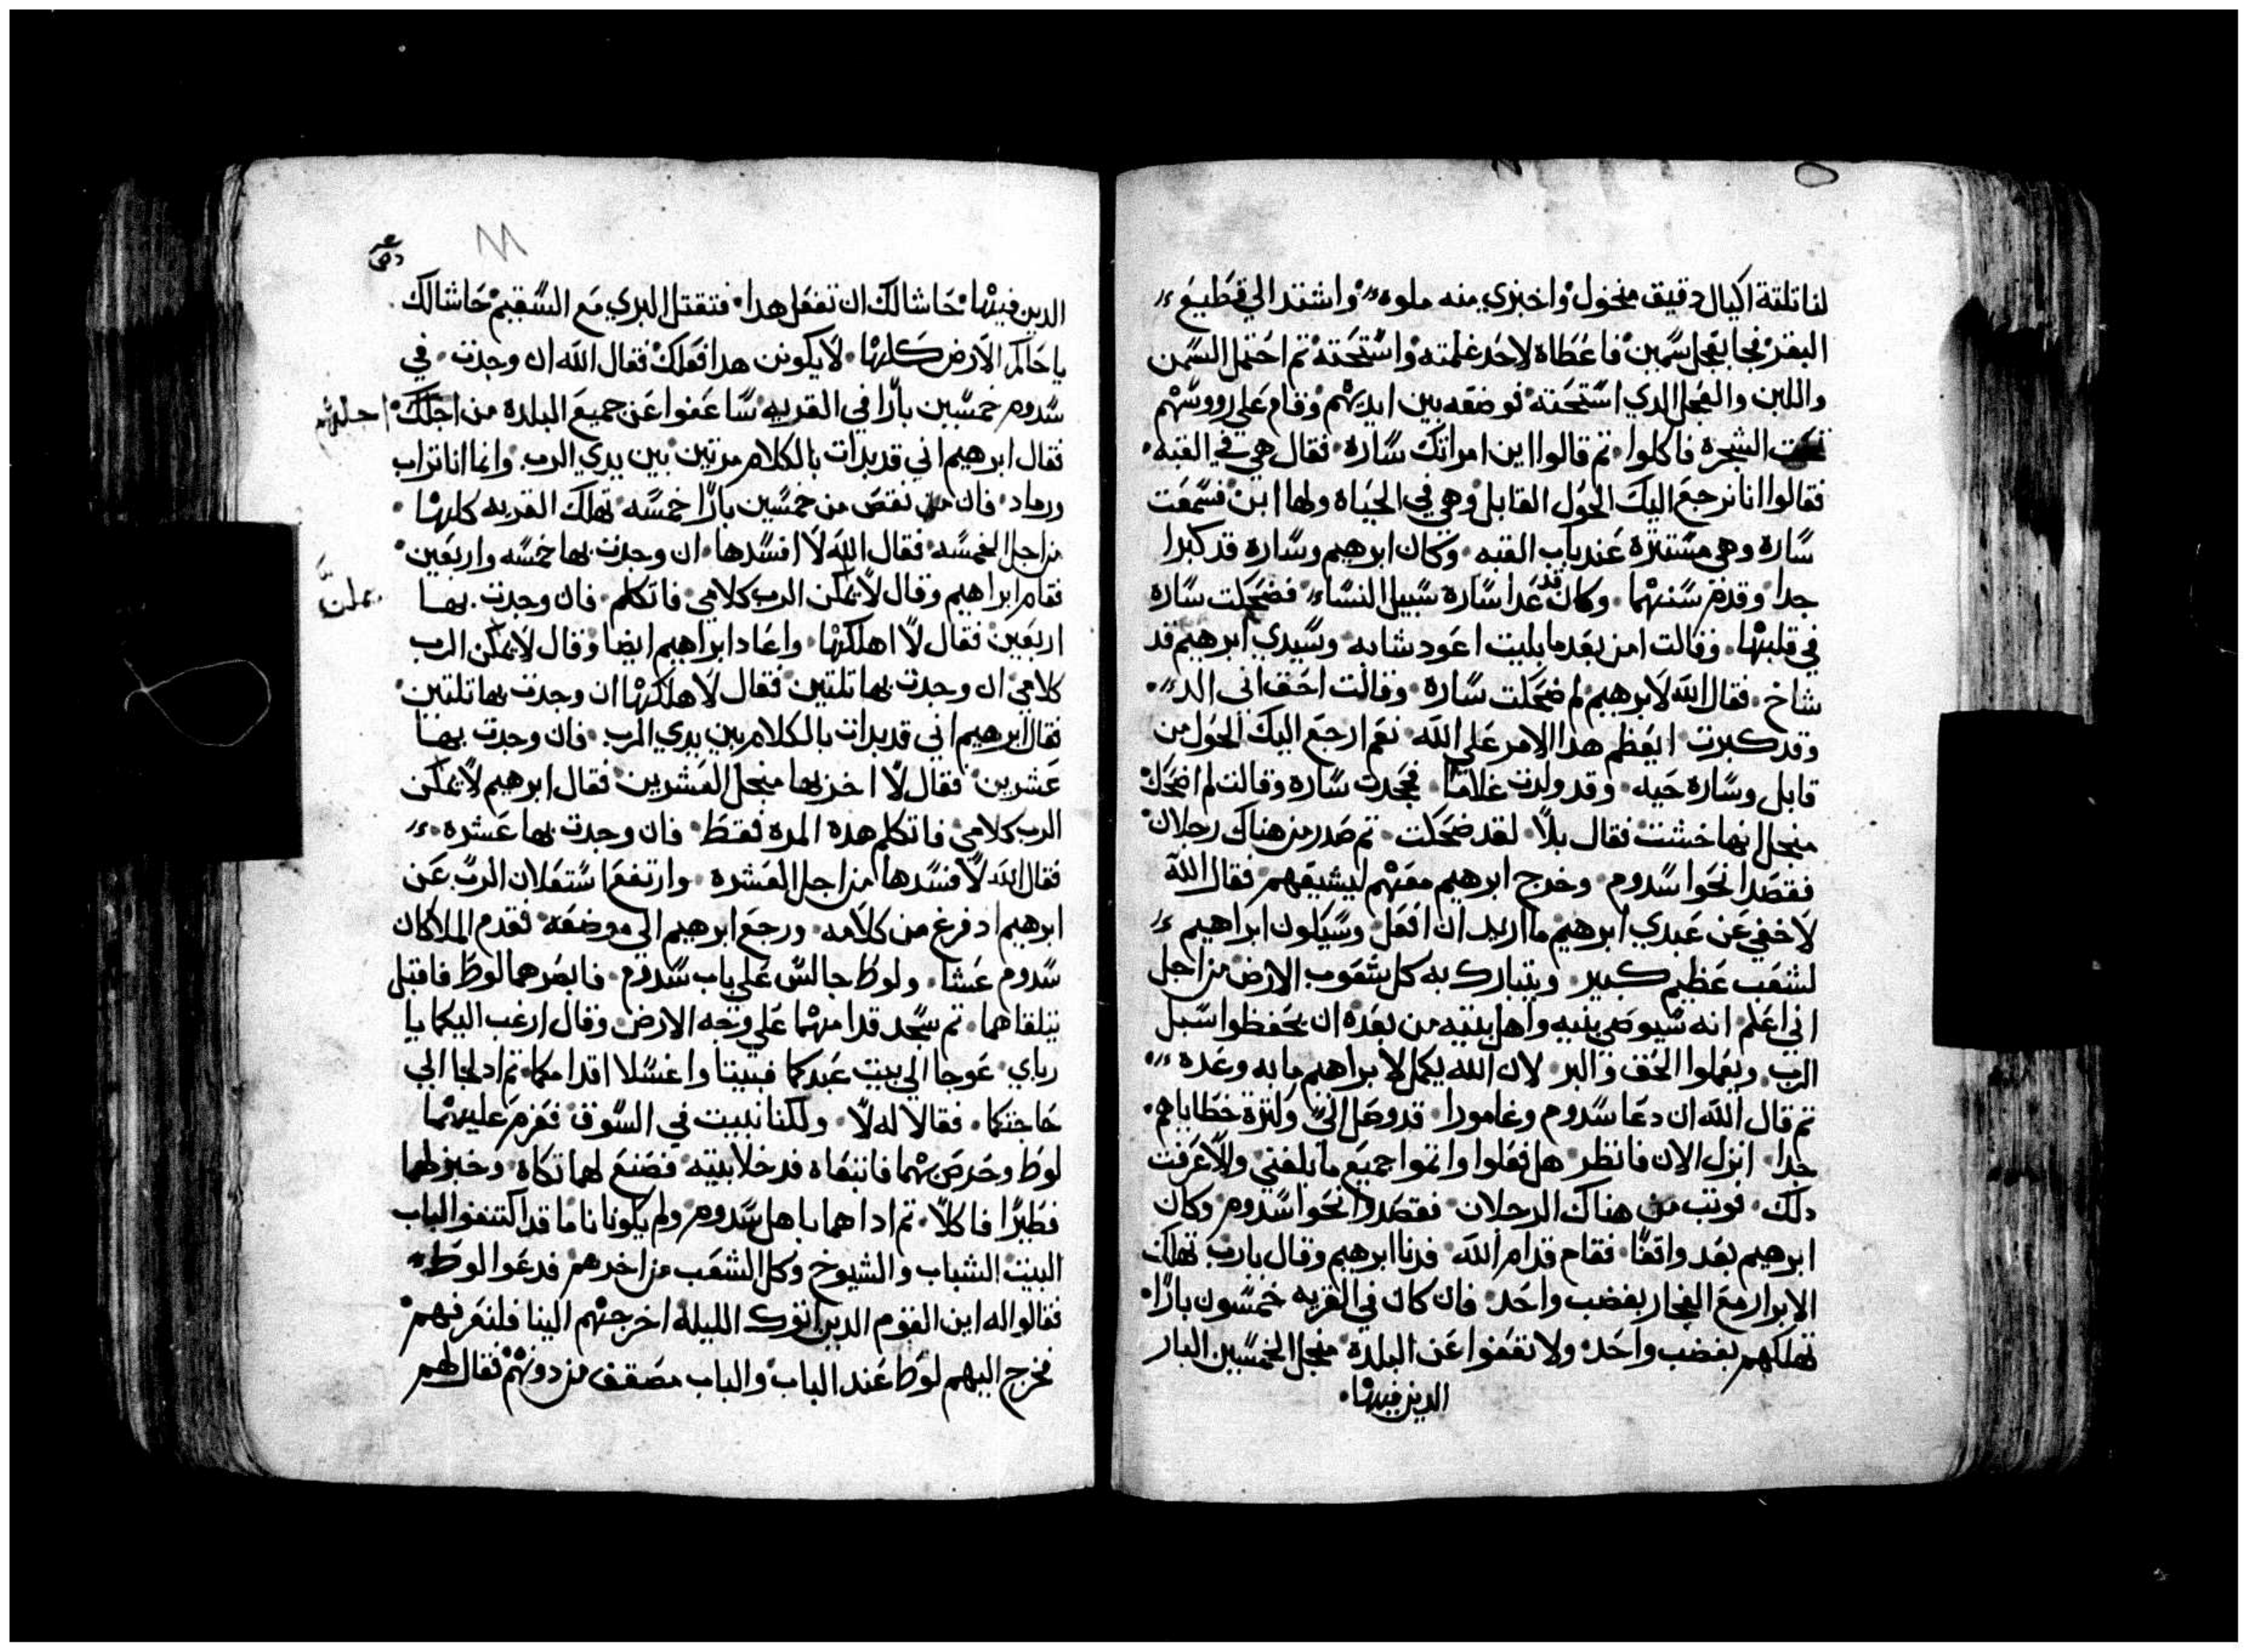 لنا تلتة اكيال دقيق منخول واخبزي منه ملوه واشتد الي قطيع
البقر فجا بعجل سمين فاعطاه لاحد غلمته واستحته تم احتمل السمن
واللبن والعجل الدي استحته فوضعه بين ايديهم وقام علي رووسهم
تحت الشجره فاكلوا تم قالوا اين امراتك سارة فقال هي في القبه
فقالوا انا نرجع اليك الحول القابل وهي في الحياه ولها ابن فسمعت
سارة وهي مستترة عند باب القبه وكان ابرهيم وسارة قد كبرا
جدا وقدم سنهما وكان قد عدا سارة سبيل النساء فضحكت سارة
في قلبها وقالت امن بعد ما بليت اعود شابه وسيدي ابرهيم قد
شاخ فقال الله لابرهيم لم ضحكت سارة وقالت احق اني الد
وقد كبرت ايعظم هدا الامر علي الله نعم ارجع اليك الحول من
قابل وسارة حيه وقد ولدت غلاما فجحدت ساره وقالت لم اضحك
منجل انها خشت فقال بلا لقد ضحكت تم صدر من هناك رجلان
فقصدا نحوا سدوم وخرج ابرهيم معهم ليشيعهم فقال الله
لا خفي عن عبدي ابرهيم ما اريد ان افعل وسيكون ابراهيم
لشعب عظيم كبير ويتبارك به كل شعوب الارض من اجل
اني اعلم انه سيوصي بنيه واهل بيته من بعده ان يحفظوا سبل
الرب ويعملوا الحق والبر لان الله يكمل لابراهيم ما به وعده
تم قال الله ان دعا سدوم وغامورا قد وصل الي ولتزة خطاياهم
جدا انزل الان فانظر هل فعلوا واتموا جميع ما بلغني والا عرفت
دلك فوتب من هناك الرجلان فقصدوا نحوا سدوم وكان
ابرهيم بعد واقفا فقام قدام الله فدنا ابرهيم وقال يارب تهلك
الابرار مع الفجار بغضب واحد فان كان في القريه خمسون بارا
تهلكهم بغضب واحد ولا تعفوا عن البلدة منجل الخمسين البار
الدين فيها
الدين فيها حاشا لك ان تفعل هدا فتقتل البري مع السقيم حاشا لك
يا حاكم الارض كلها لا يكونن هدا فعلك فقال الله ان وجدت في
سدوم خمسين بارا في القريه ساعفوا عن جميع البلدة من اجلك
فقال ابرهيم اني قد بدات بالكلام مرتين بين يدي الرب وانما انا تراب
ورماد فان نقص من خمسين بارا خمسه تهلك القريه كلها
من اجل الخمسه فقال الله لا افسدها ان وجدت بها خمسه واربعين
فقام ابراهيم وقال لا يمكن الرب كلامي فاتكلم فان وجدت بها
اربعين فقال لا اهلكها واعاد ابراهيم ايضا وقال لا يمكن الرب
كلامي ان وجدت بها تلتين فقال لا هلكها ان وجدت بها تلتين
فقال ابرهيم اني قد بدات بالكلام بين يدي الرب فان وجدت بها
عشرين فقال لا اخربها منجل العشرين فقال ابرهيم لا يمكن
الرب كلامي فاتكلم هده المره فقط فان وجدت بها عشره
فقال الله لا فسدها من اجل العشره وارتفع استعلان الرب عن
ابرهيم اد فرغ من كلامه ورجع ابرهيم الي موضعه فقدم الملاكان
سدوم عشا ولوط جالس علي باب سدوم فابصرهما لوط فاقبل
يتلقاهما تم سجد قدامهما علي وجه الارض وقال ارغب اليكما يا
رباي عوجا الي بيت عبدكما فبيتا واغسلا اقدامكما تم ادلجا الي
حاجتكما فقالا له لا ولكنا نبيت في السوق فعزم عليهما
لوط وحرص بهما فاتبعاه فدخلا بيته فصنع لهما تكاه وخبز لهما
فطيرا فاكلا تم اداهما باهل سدوم ولم يكونا ناما قد اكتنفوا الباب
البيت الشباب والشيوخ وكل الشعب من اخرهم فدعوا لوط
فقالوا له اين القوم الدين اتوك الليلة اخرجهم الينا فلنعرفهم
فخرج اليهم لوط عند الباب والباب مصقف من دونهم فقال لهم